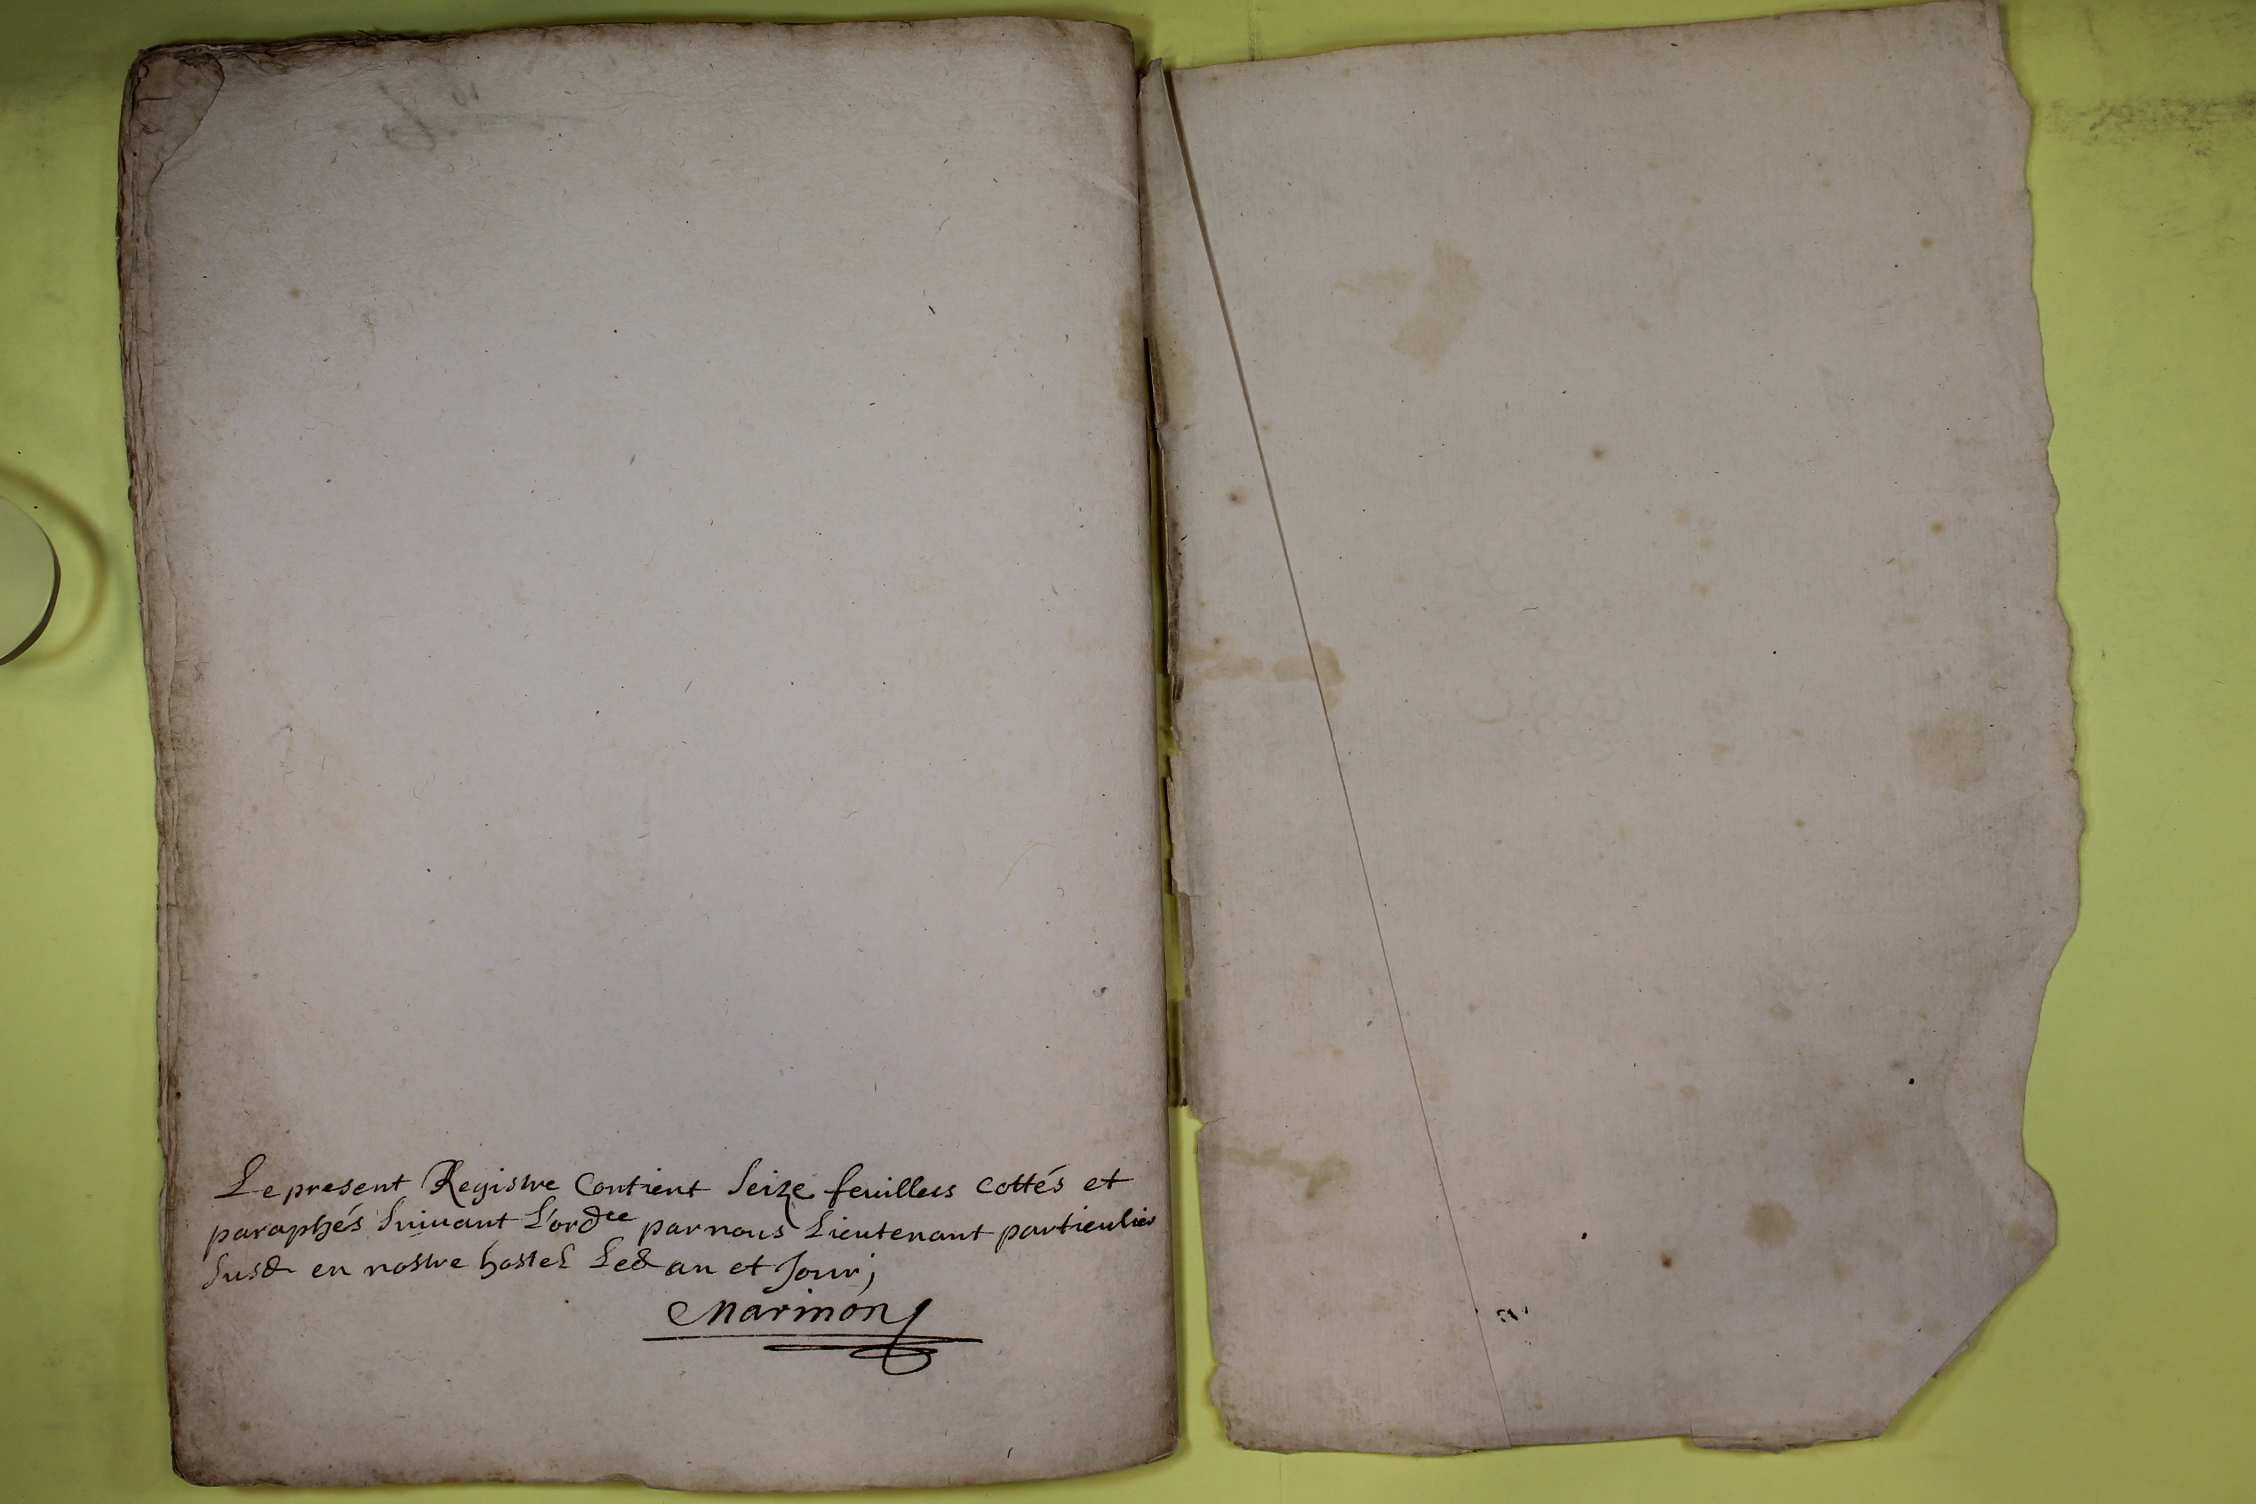 Le present Registre Contient Seize feuillets cottés et
paraphés Suivant L'ordce par nous Lieutenant particulier
Susd en nostre hostel Led an et Jour,
Marinon